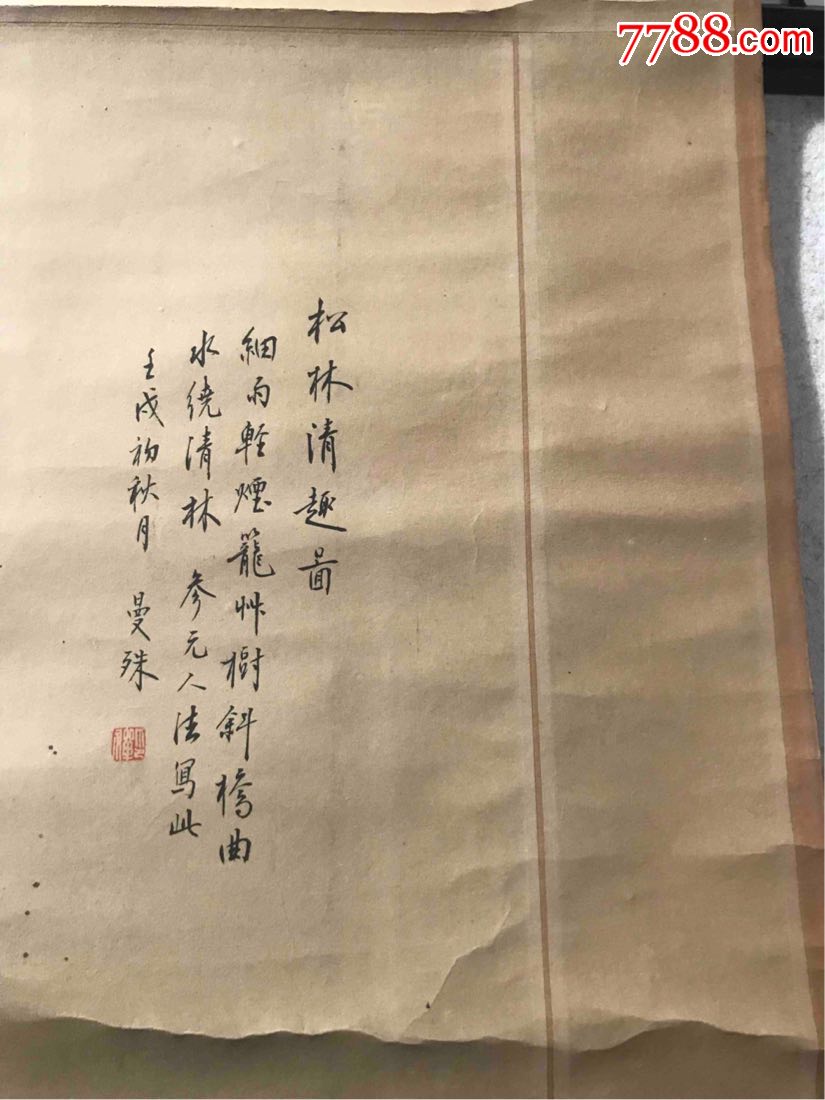 7788.com
松林清趣啚
細雨輕煙籠艸樹斜橋曲
水繞清林 參元人法寫此
壬戌初秋月 曼殊